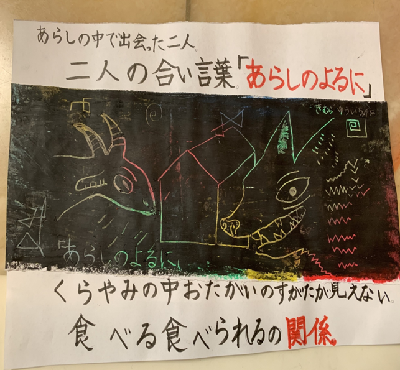 あらしの中で出会った二人
二人の合い言葉「あらしのよるに」
あらしのよるに
くらやみの中おたがいのすがたが見えない
食べる食べられるの関係。